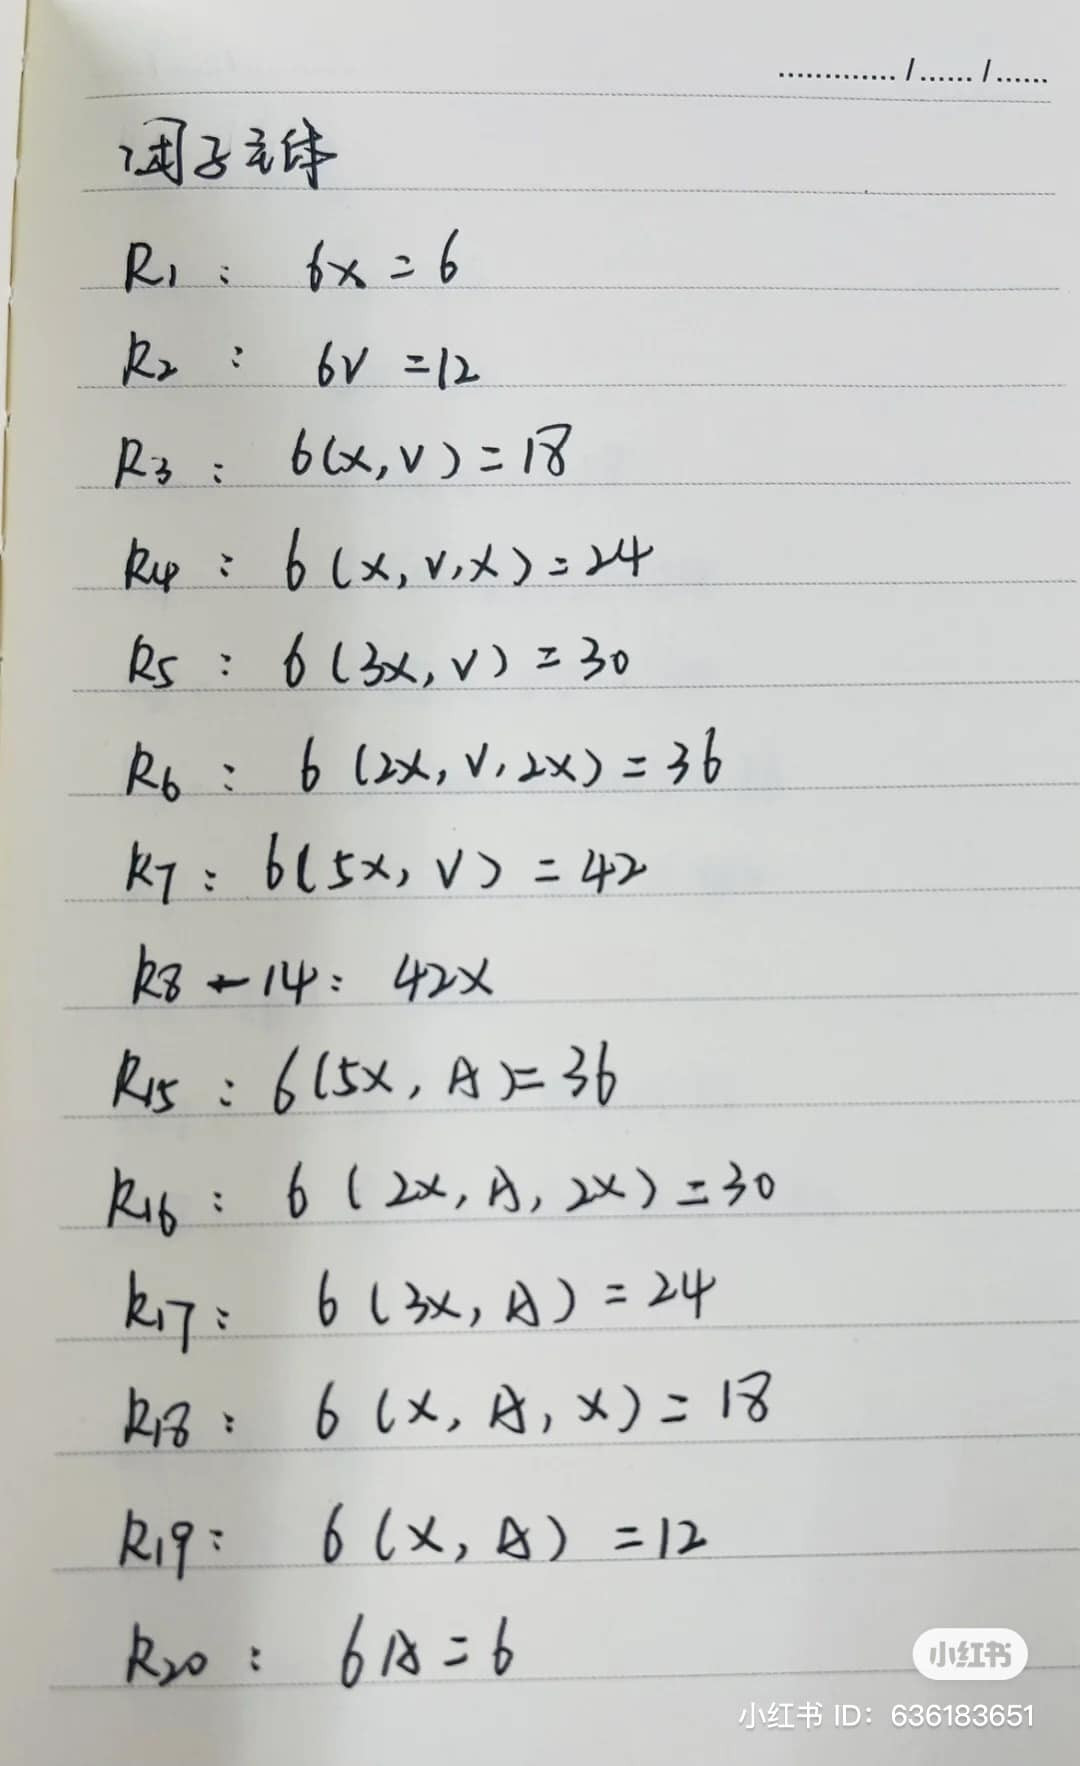 ............./....../......
调子主体
R1 : 6x = 6
R2 : 6V = 12
R3 : 6(x,V) = 18
R4 : 6(x,V,x) = 24
R5 : 6(3x,V) = 30
R6 : 6(2x,V,2x) = 36
R7 : 6(5x,V) = 42
R8 - 14 : 42x
R15 : 6(5x,A) = 36
R16 : 6(2x,A,2x) = 30
R17 : 6(3x,A) = 24
R18 : 6(x,A,x) = 18
R19 : 6(x,A) = 12
R20 : 6A = 6
小红书
小红书 ID: 636183651